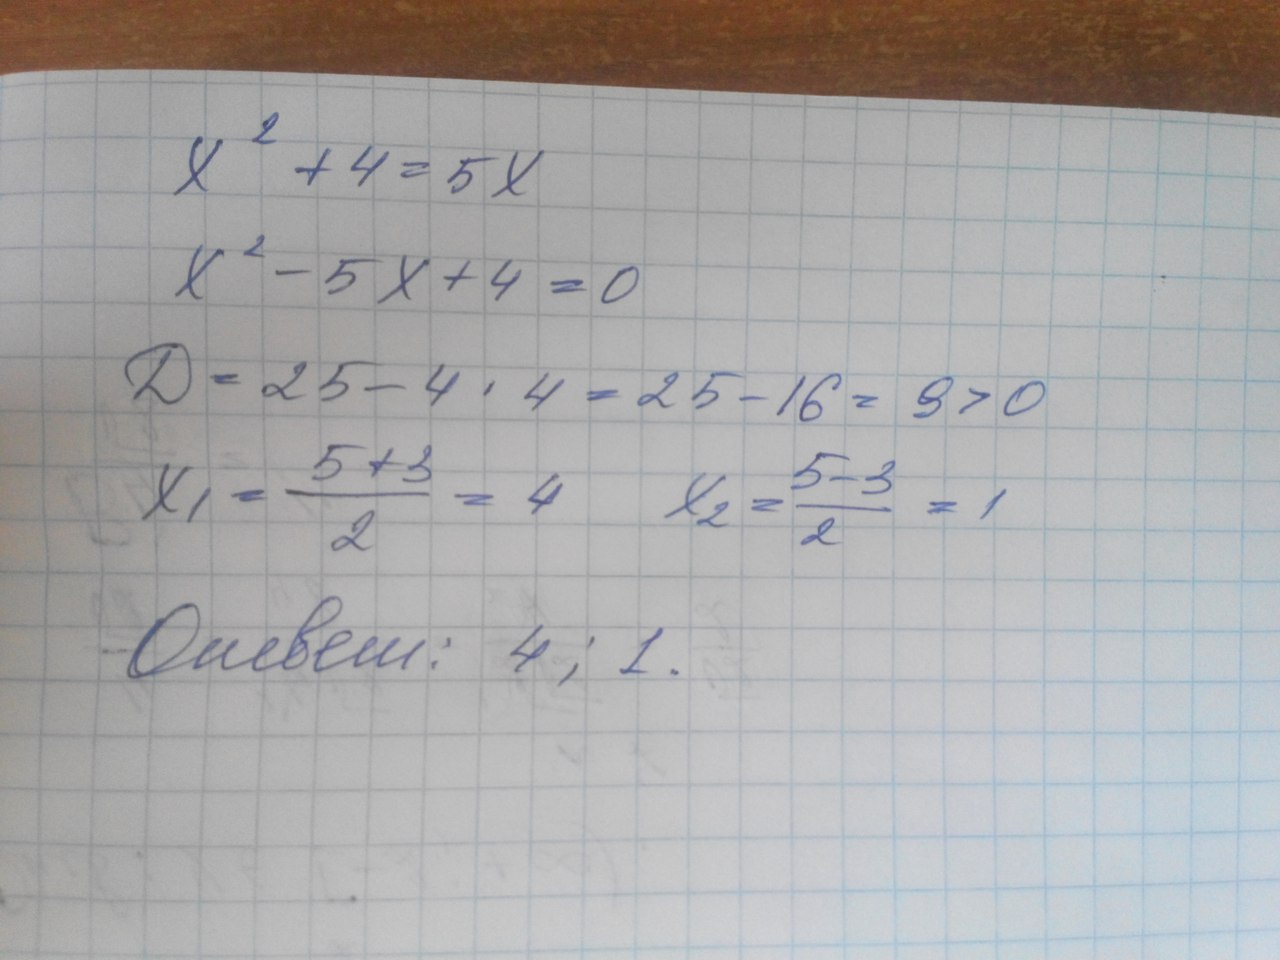 x² + 4 = 5x
x² - 5x + 4 = 0
D = 25 - 4 · 4 = 25 - 16 = 9 > 0
x₁ = (5+3)/2 = 4 x₂ = (5-3)/2 = 1
Ответ: 4; 1.